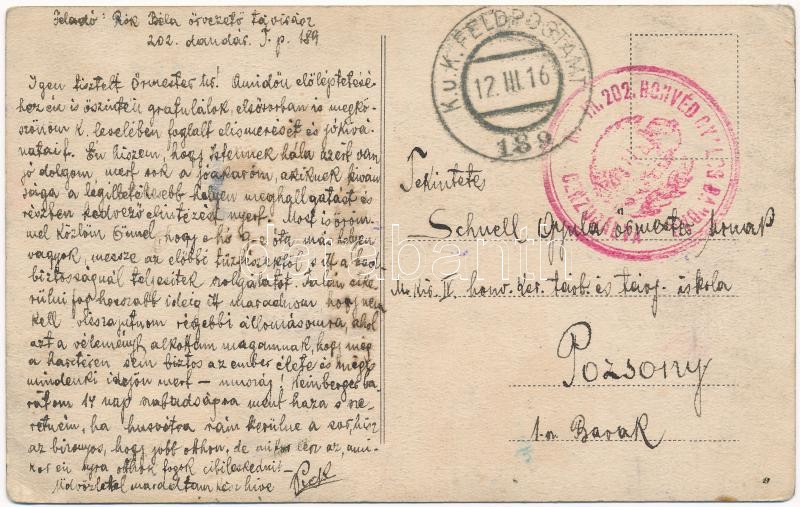 Feladó: Pick Béla őrvezető távirász
202. dandár. T. p. 189
Igen tisztelt Őrmester úr! Amidőn előléptetésé-
hez én is őszintén gratulálok, elsősorban is megkö-
szönöm k. levelében foglalt elismerését és jókívá-
natait. Én hiszem, hogy Istennek hála azért van
jó dolgom mert sok a jóakaróm, akiknek kíván
sága a legilletékesebb helyen meghallgatást és
részben kedvező elintézést nyert. Most is öröm-
mel közlöm Önnel, hogy e hó óta más helyen
vagyok, messze az előbbi tűzfészektől s itt a
biztonságnál teljesítek szolgálatot. Talán sike
rülni fog hosszabb ideig itt maradnom hogy nem
kell visszajutnom régebbi állomásomra, ahol
azt a véleményt alkottam magamnak, hogy még
a harctéren sem biztos az ember élete és mégis
mindenki idejön mert – muszáj! Heinberger ba-
rátom 14 nap szabadságra ment haza s sze-
retném, ha husvétra rám kerülne a sor, hisz
az bizonyos, hogy jobb otthon. de mikor lesz az, ami-
kor én újra otthon fogok
Üdvözlettel maradtam kész híve Pick
K.u.K. FELDPOSTAMT
12. III. 16
189
202. HONVÉD GYALOG DANDÁR
Tekintetes
Schnell Gyula őrmester úrnak
M. kir. IV. honv. ker. távb. és távj. iskola
Pozsony
1-ső Barak
darabanth